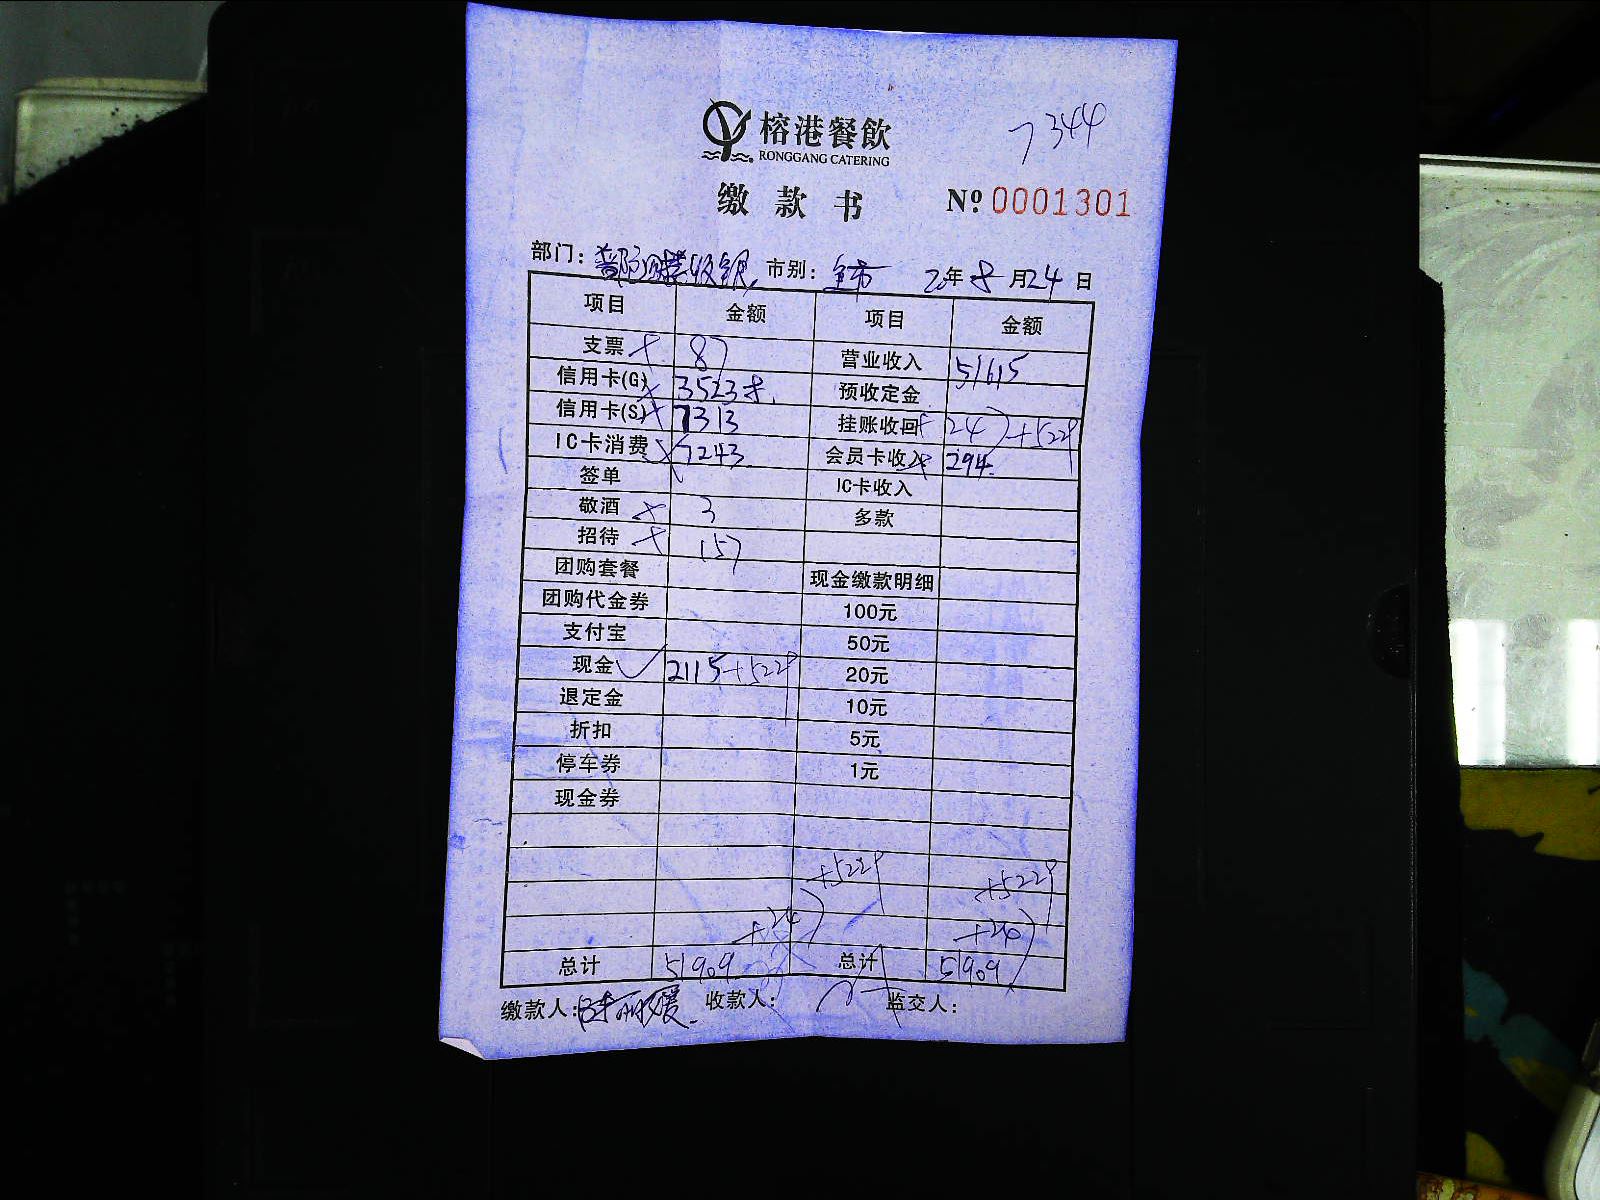 榕港餐飲
RONGGANG CATERING
7344
缴款书 Nº 0001301
部门: 收银 市别: 全市 20年8月24日
项目 金额 项目 金额
支票 × 87 营业收入 51615
信用卡(G) × 35238. 预收定金
信用卡(S) × 7313 挂账收回 × 247+5229
IC卡消费 × 7243 会员卡收入 × 294
签单 IC卡收入
敬酒 × 3 多款
招待 × 157
团购套餐 现金缴款明细
团购代金券 100元
支付宝 50元
现金 ✓ 2115+5229 20元
退定金 10元
折扣 5元
停车券 1元
现金券
+5229 +5229
总计 51909 总计 51909
缴款人: 收款人: 监交人: